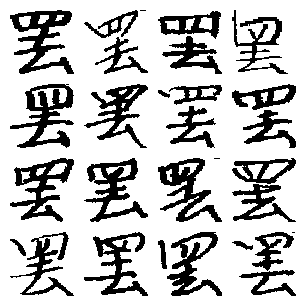 罢罢罢罢
罢罢罢罢
罢罢罢罢
罢罢罢罢